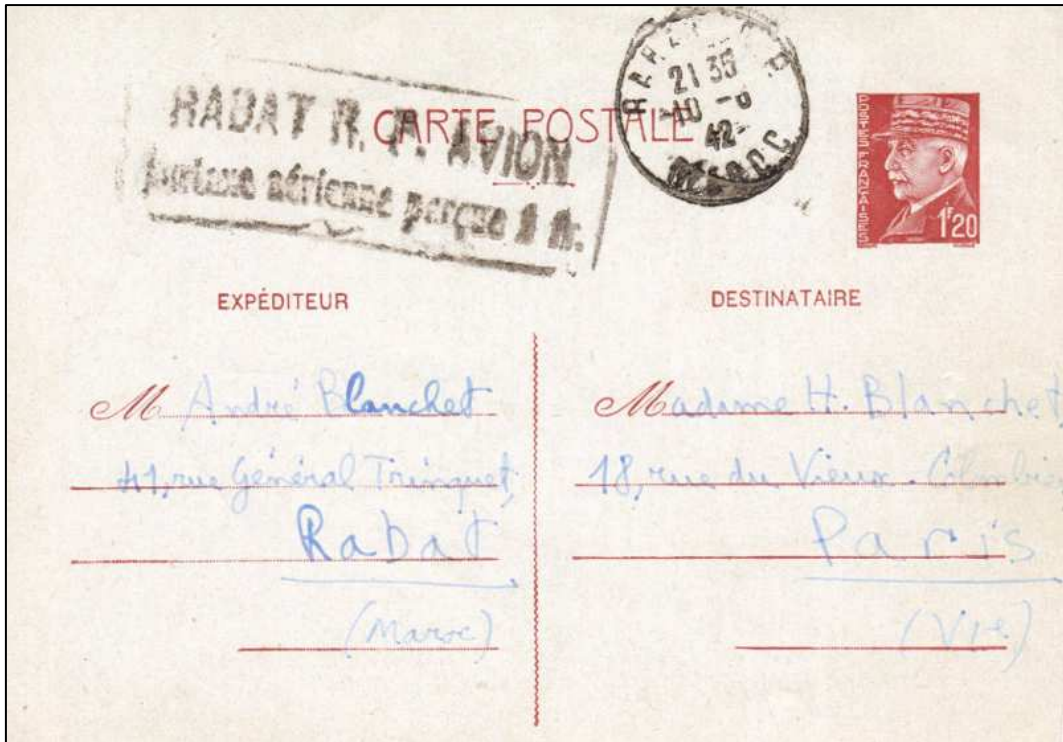 RABAT R. P. AVION
surtaxe aérienne perçue 1 fr.
CARTE POSTALE
RABAT R.P.
21 35
10 -8
42
MAROC
POSTES FRANÇAISES
1F20
EXPÉDITEUR
M André Blanchet
41, rue Général Trinquet,
Rabat
(Maroc)
DESTINATAIRE
Madame H. Blanchet,
18, rue du Vieux-Colombier
Paris
(VIe)